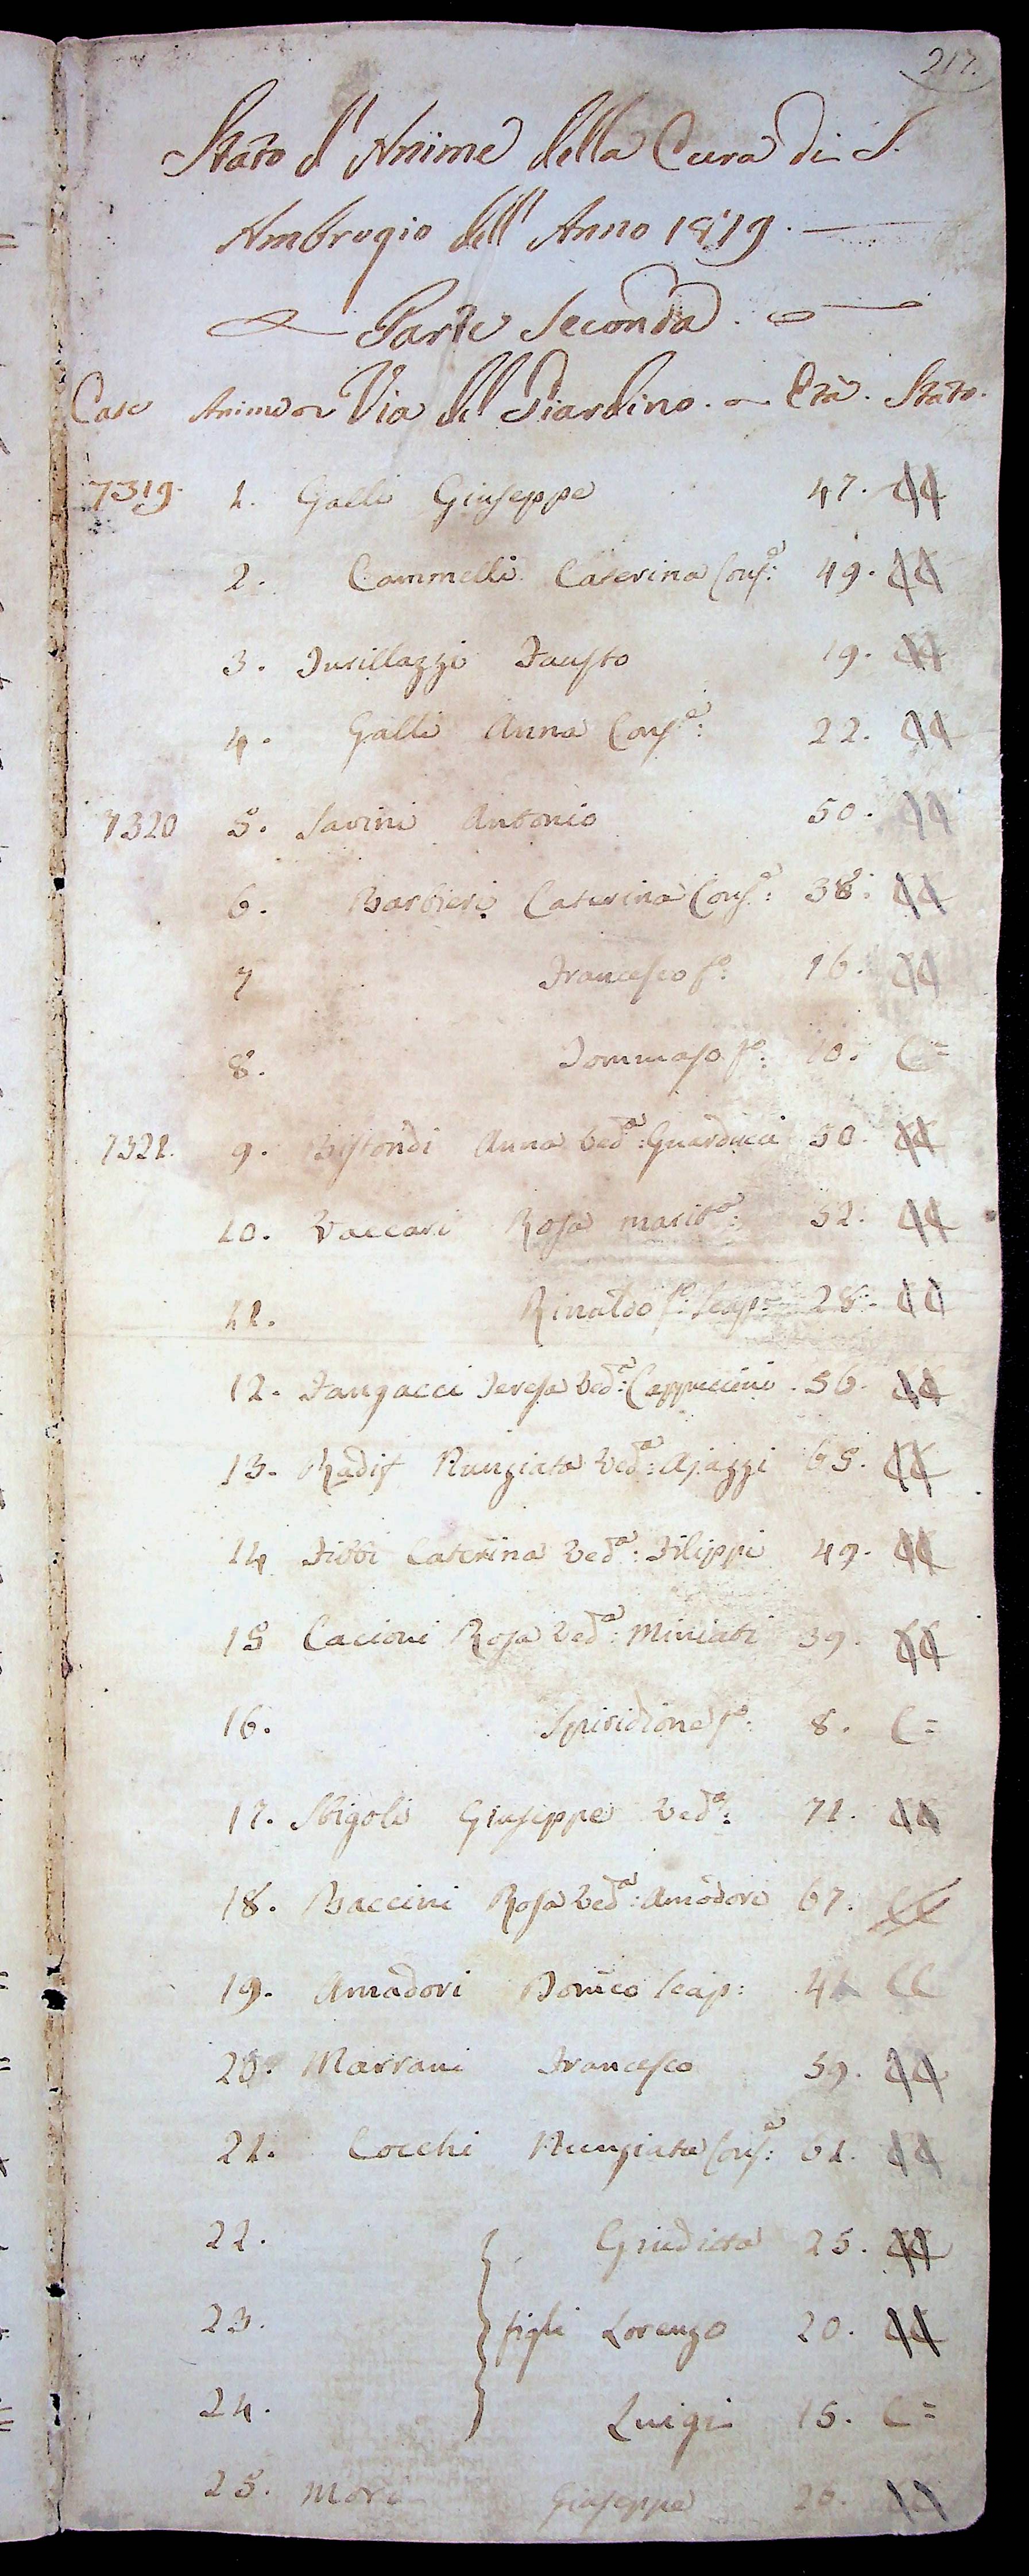 217.
Stato d'Anime della Cura di S.
Ambrogio dell'Anno 1819.
Parte Seconda.
Case Anime Via del Giardino. Età. Stato.
7319. 1. Galli Giuseppe 47. CC
2. Cammelli Caterina Cons.e: 49. CC
3. Fausto 19. CC
4. Galli Anna Cons.e: 22. CC
7320 5. Savini Antonio 50. CC
6. Barbieri Caterina Cons.e: 38. CC
7 Francesco f.o: 16. CC
8. Tommaso f.o: 10. C=
7321. 9. Anna Ved.a: Guarducci 50. CC
10. Vaccari Rosa marit.a: 52. CC
11. Rinaldo f.o: scap.o 28. CC
12. Fangacci Teresa Ved.a: Cappuccini. 56. CC
13. Nunziata Ved.a: Ajazzi 65. CC
14 Fibbi Caterina Ved.a: Filippi 49. CC
15 Cacioni Rosa Ved.a: Miniati 39. CC
16. Spiridione f.o: 8. C=
17. Sbigoli Giuseppe Ved.o: 71. CC
18. Baccini Rosa Ved.a: Amadori 67. CC
19. Amadori Dom.co scap: CC
20. Marrani Francesco 59. CC
21. Cocchi Nunziata Cons.e: 61. CC
22. Giudicta 25. CC
23. figli Lorenzo 20. CC
24. Luigi 15. C=
25. Mori Giuseppe 26. CC